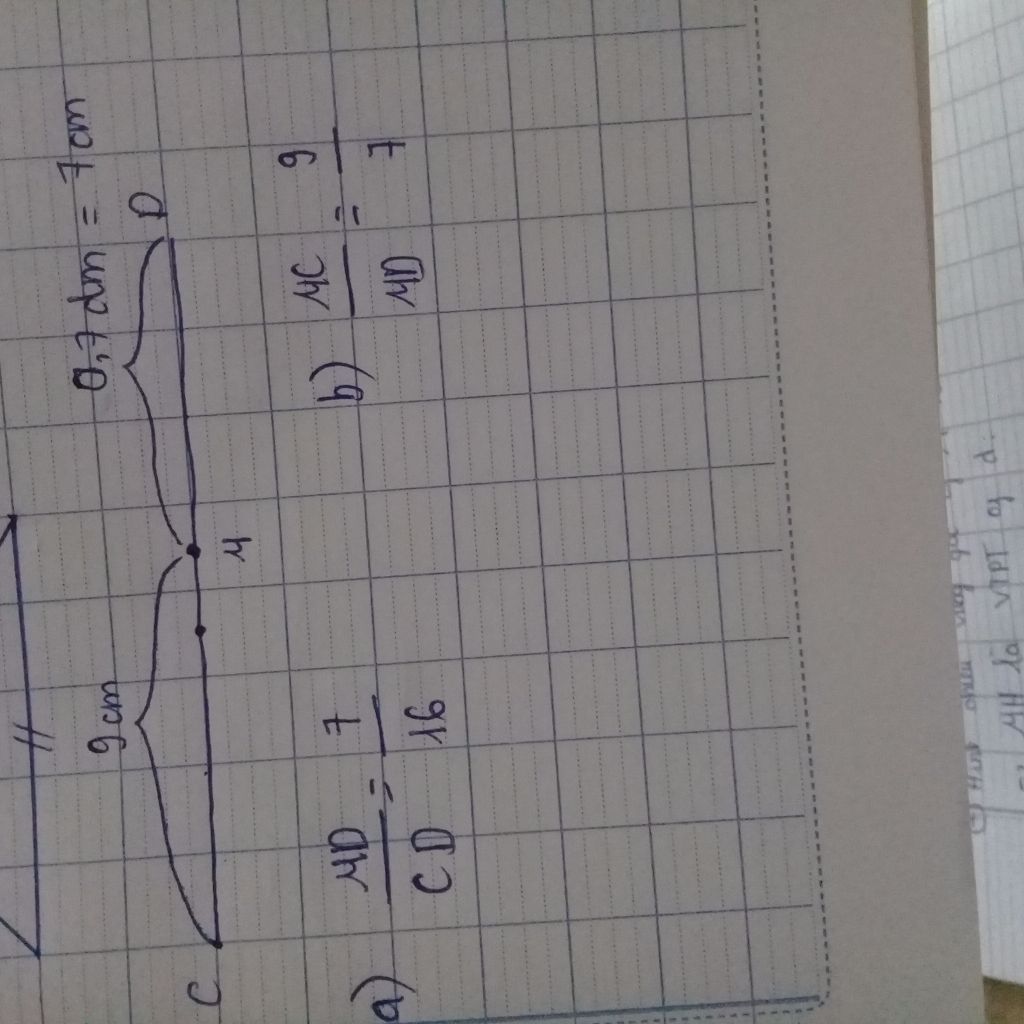 9cm 0,7 dm = 7cm
C M D
a) MD/CD = 7/16 b) MC/MD = 9/7
MH là VTPT của d.